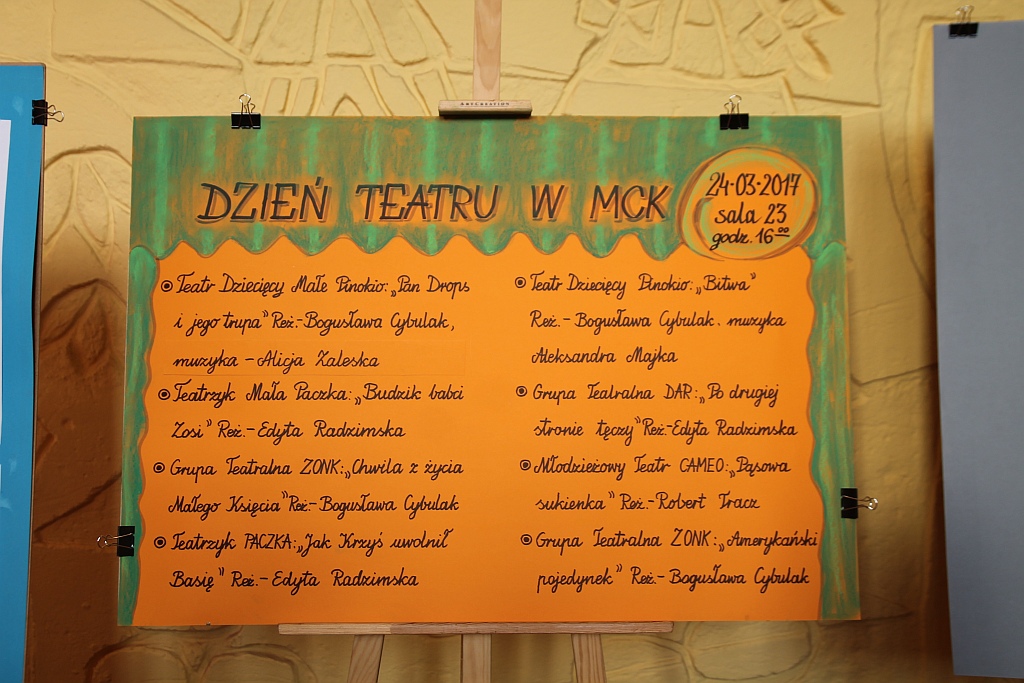 ARTCREATION
DZIEŃ TEATRU W MCK
24-03-2017
sala 23
godz. 16⁰⁰
Teatr Dziecięcy Małe Pinokio: „Pan Drops
i jego trupa" Reż.- Bogusława Cybulak,
muzyka - Alicja Zaleska
Teatrzyk Mała Paczka: „Budzik babci
Zosi" Reż.- Edyta Radzimska
Grupa Teatralna ZONK: „Chwila z życia
Małego Księcia" Reż.- Bogusława Cybulak
Teatrzyk PACZKA: „Jak Krzyś uwolnił
Basię" Reż.- Edyta Radzimska
Teatr Dziecięcy Pinokio: „Bitwa"
Reż.- Bogusława Cybulak. muzyka
Aleksandra Majka
Grupa Teatralna DAR: „Po drugiej
stronie tęczy" Reż.- Edyta Radzimska
Młodzieżowy Teatr CAMEO: „Pąsowa
sukienka" Reż.- Robert Tracz
Grupa Teatralna ZONK: „Amerykański
pojedynek" Reż.- Bogusława Cybulak